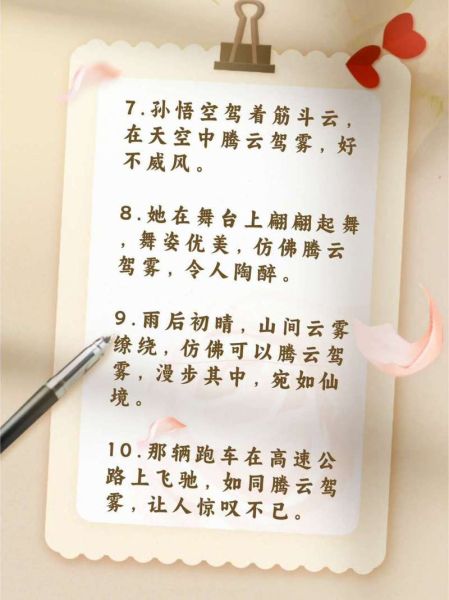 7.孙悟空驾着筋斗云，
在天空中腾云驾雾，好
不威风。
8.她在舞台上翩翩起舞
，舞姿优美，仿佛腾云
驾雾，令人陶醉。
9.雨后初晴，山间云雾
缭绕，仿佛可以腾云驾
雾，漫步其中，宛如仙
境。
10.那辆跑车在高速公
路上飞驰，如同腾云驾
雾，让人惊叹不已。